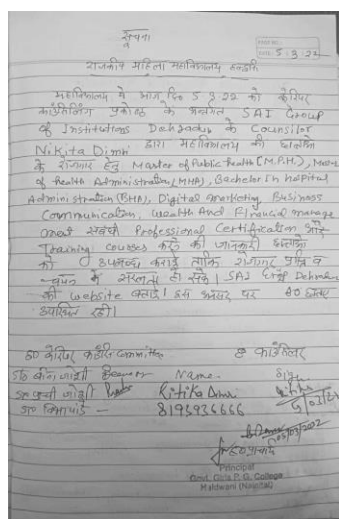 सूचना
DATE: 5-3-22
राजकीय महिला महाविद्यालय हल्द्वानी
महाविद्यालय में आज दि० 5.3.22 को कैरियर
काउंसिलिंग प्रकोष्ठ के अन्तर्गत SAI Group
of Institutions Dehradun के Counsilor
Nikita Dimri द्वारा महाविद्यालय की छात्राओं
के रोजगार हेतु Master of Public health (M.P.H.), Master
of health Administration (MHA), Bachelor In hospital
Administration (BHA), Digital marketing, Business
Communication, wealth And Financial manage
ment संबंधी Professional Certification और
Training courses करने की जानकारी छात्राओं
को उपलब्ध कराई ताकि रोजगार प्राप्ति व
चयन में सरलता हो सके। SAI Group Dehradun
की website बताई। इस अवसर पर 40 छात्राएं
उपस्थित रही।
ह० कैरियर काउंसिलिंग Committee
ह० काउंसिलर
Name -
डा० जोशी
8193936666
05/03/2022
Principal
Govt. Girls P. G. College
Haldwani (Nainital)